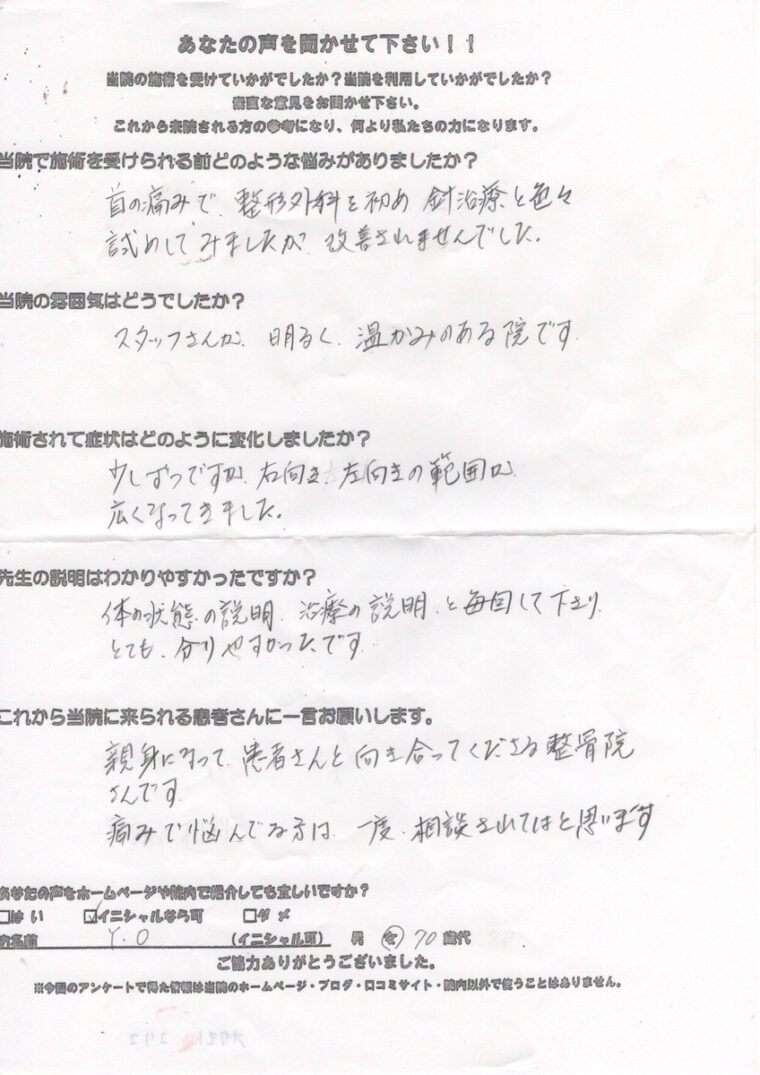 あなたの声を聞かせて下さい！！
当院の施術を受けていかがでしたか？当院を利用していかがでしたか？
素直な意見をお聞かせ下さい。
これから来院される方の参考になり、何より私たちの力になります。
当院で施術を受けられる前どのような悩みがありましたか？
首の痛みで、整形外科を初め 針治療と色々
試めしてみましたが、改善されませんでした。
当院の雰囲気はどうでしたか？
スタッフさんが、明るく、温かみのある院です
施術されて症状はどのように変化しましたか？
少しづつですが、右向き、左向きの範囲が
広くなってきました。
先生の説明はわかりやすかったですか？
体の状態の説明、治療の説明、と毎回して下さり
とても、分りやすかったです
これから当院に来られる患者さんに一言お願いします。
親身になって、患者さんと向き合ってくださる整骨院
さんです
痛みで悩んでる方は、一度、相談されてはと思います
あなたの声をホームページや院内で紹介しても宜しいですか？
□はい ☑イニシャルなら可 □ダメ
お名前 Y.O (イニシャル可) 男 女 70歳代
ご協力ありがとうございました。
※今回のアンケートで得た情報は当院のホームページ・ブログ・口コミサイト・院内以外で使うことはありません。